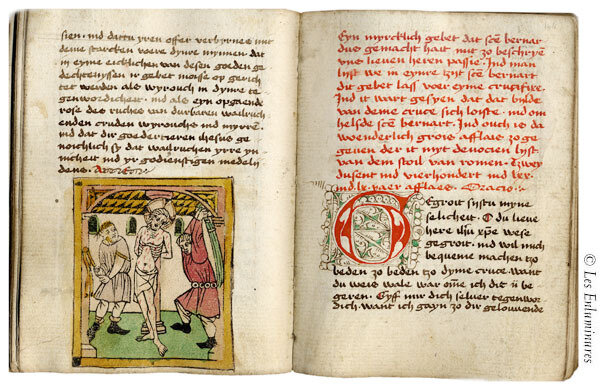 sien. ind dattu yren offer verbyrnes mit
deine starcken vuere dynre mynnen. dat
in eyme eicklichen van desen goulden ge
dechtenyssen yr gebet moisse op gerich
tet werden als wyrouch in dyme te
genwordicheit. ind als eyn opgaende
rose des ruches van durbaren wailruch
enden cruden wyrouchs ind myrren.
ind dat dir goedertieren ihesus ge
noichlich sy dat wailruchen yrre yn
nicheit ind yr godienstigen medelij
dens. Amen
Eyn myrcklich gebet dat sent bernar
dus gemacht hait mit zo beschryen
vns lieuen heren passie. Ind man
lyst we in eynre zijt sent bernart
dit gebet lass voer eyme crucifixe.
Ind it wart gesyen dat dat bilde
van deme cruce sich loiste. ind om
helsde sent bernart. Ind ouch is da
wonderlich grois afflaes zo ge
geuen der it myt deuocien lyst
van dem stoil van romen. Tzwey
dusent ind vierhondert ind
ind lx. jaer afflaes. Oracio.
O Egroit sijstu myne
selicheit. O du lieue
here ihu xpe wese
gegroit. ind wil mich
bequeme machen tzo
beden zo beden tzo dyme cruce want
du weis wale war omme ich dit
geren. Gyff mir dich seluer tegenwor
dich. want ich gayn zo dir gelouuende
© Les Enluminures